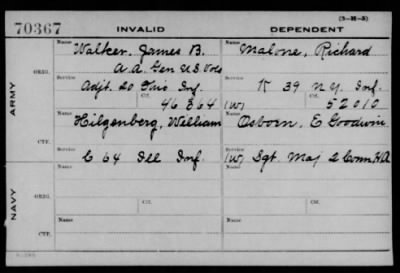 (3-H-5)
70367 INVALID DEPENDENT
Name Walker, James B. Name Malone, Richard
A. A. Gen U S Vols
ORIG.
Service Service
Adjt. 20 Ohio Inf. K 39 N.Y. Inf.
Ctf. 46 864 (W) Ctf. 52010
ARMY
Name Hilgenberg, William Name Osborn, E Goodwin
CTF.
Service Service
C 64 Ill Inf. (W) Sgt. Maj 2 Conn HA
NAVY
Name Ctf. Name Ctf.
ORIG.
Service Service
Name Name
CTF.